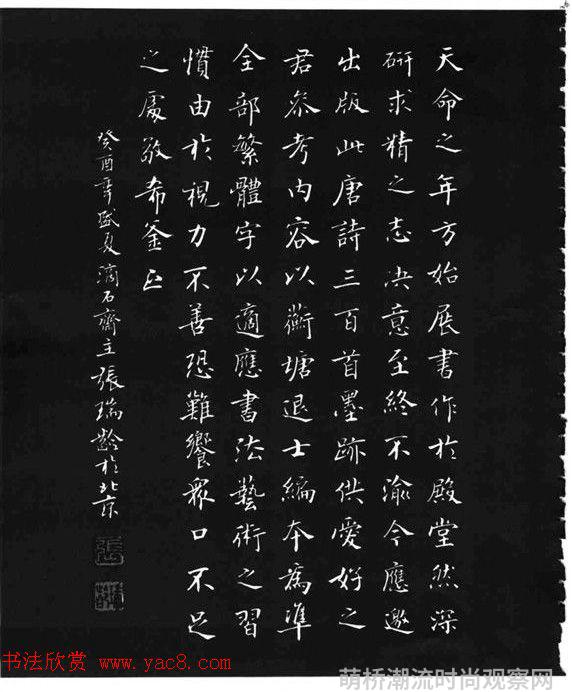 天命之年方始展書作於殿堂然深
研求精之志決意至終不渝今應邀
出版此唐詩三百首墨跡供愛好之
君參考內容以蘅塘退士編本為準
全部繁體字以適應書法藝術之習
慣由於視力不善恐難饗眾口不足
之處敬希釜正
癸酉年盛夏滴石齋主張瑞齡於北京
书法欣赏 www.yac8.com
萌桥潮流时尚观察网